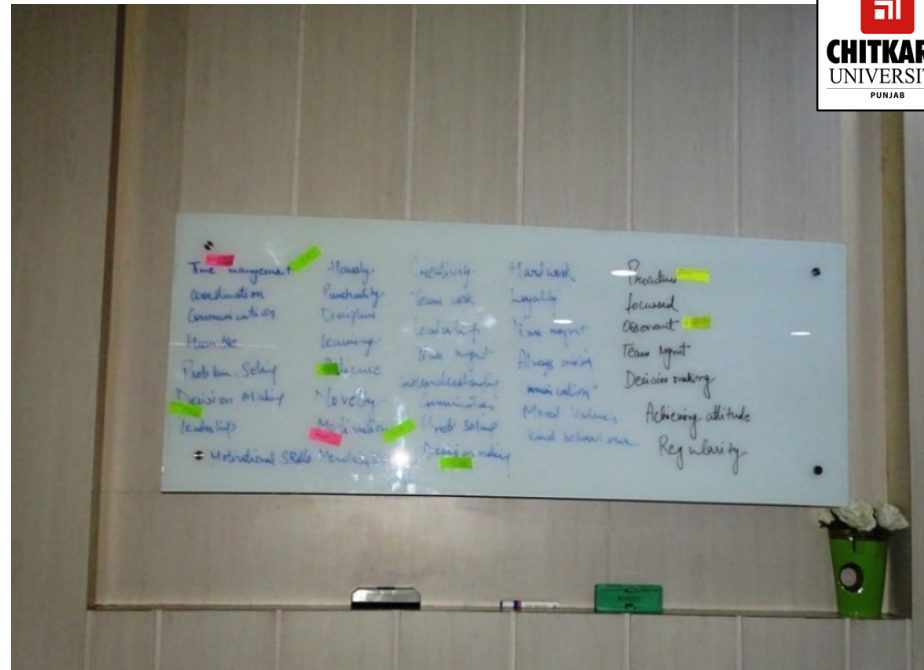 CHITKAR
UNIVERSI
PUNJAB
Time management
Coordination
Communication
Problem Solving
Decision Making
Leadership
Motivational Skills
Honesty
Punctuality
Discipline
Learning
Novelty
Motivation
Creativity
Team work
Leadership
Time mgnt
Communication
Prob solving
Decision making
Hard work
Loyalty
Time mgmt
Moral Values
kind behaviour
Proactive
focussed
Team Mgmt
Decision making
Achieving attitude
Regularity